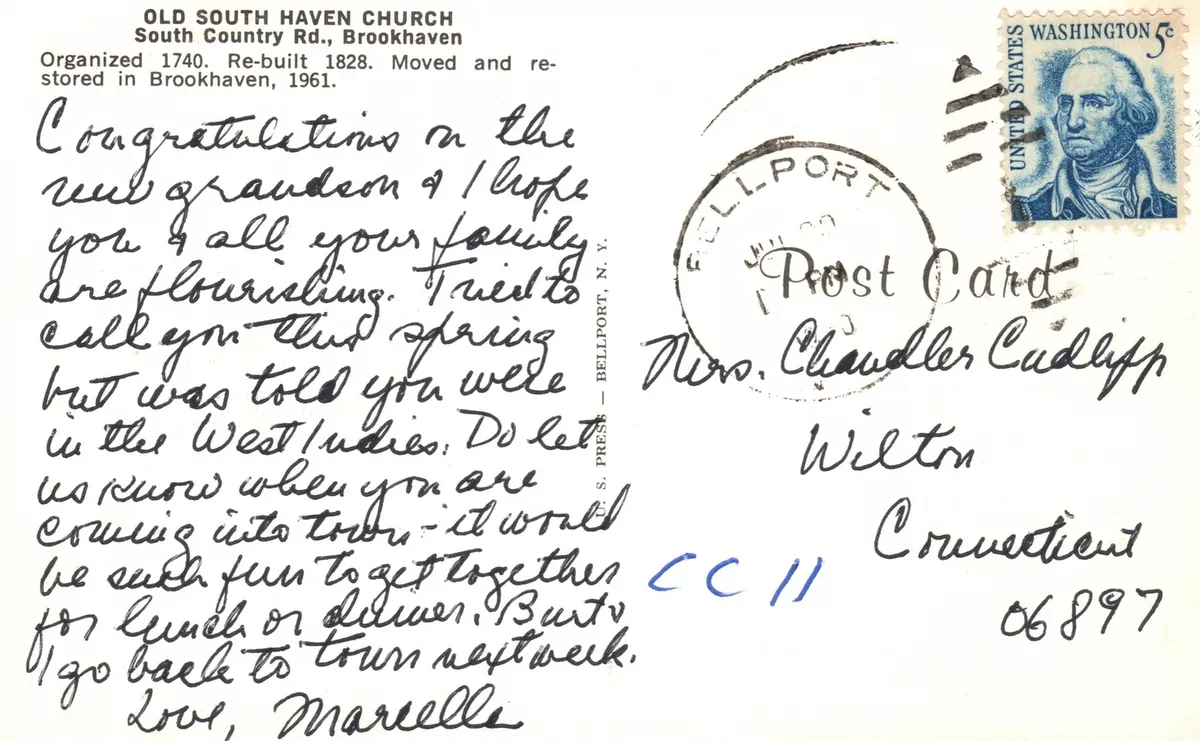 OLD SOUTH HAVEN CHURCH
South Country Rd., Brookhaven
Organized 1740. Re-built 1828. Moved and re-
stored in Brookhaven, 1961.
Congratulations on the
new grandson & I hope
you & all your family
are flourishing. Tried to
call you this spring
but was told you were
in the West Indies. Do let
us know when you are
coming into town - it would
be such fun to get together
for lunch or dinner. Burt &
I go back to town next week.
Love, Marcella
S. PRESS — BELLPORT, N. Y.
UNITED STATES
WASHINGTON 5c
BELLPORT
Post Card
Mrs. Chandler Cudlipp
Wilton
Connecticut
06897
CC 11